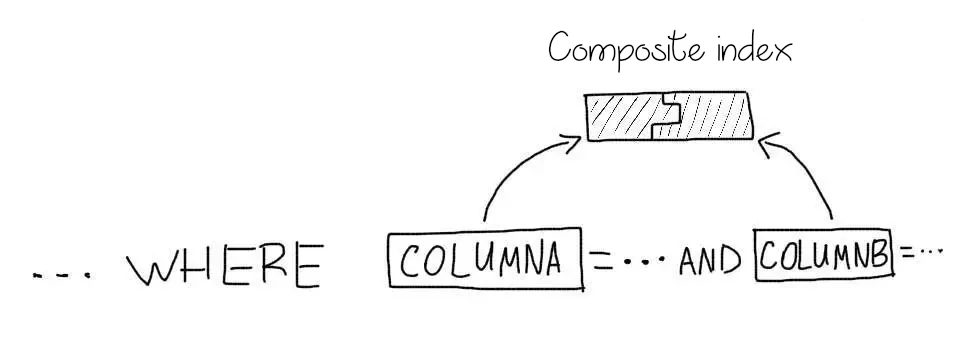 Composite index
... WHERE COLUMNA = ... AND COLUMNB = ...